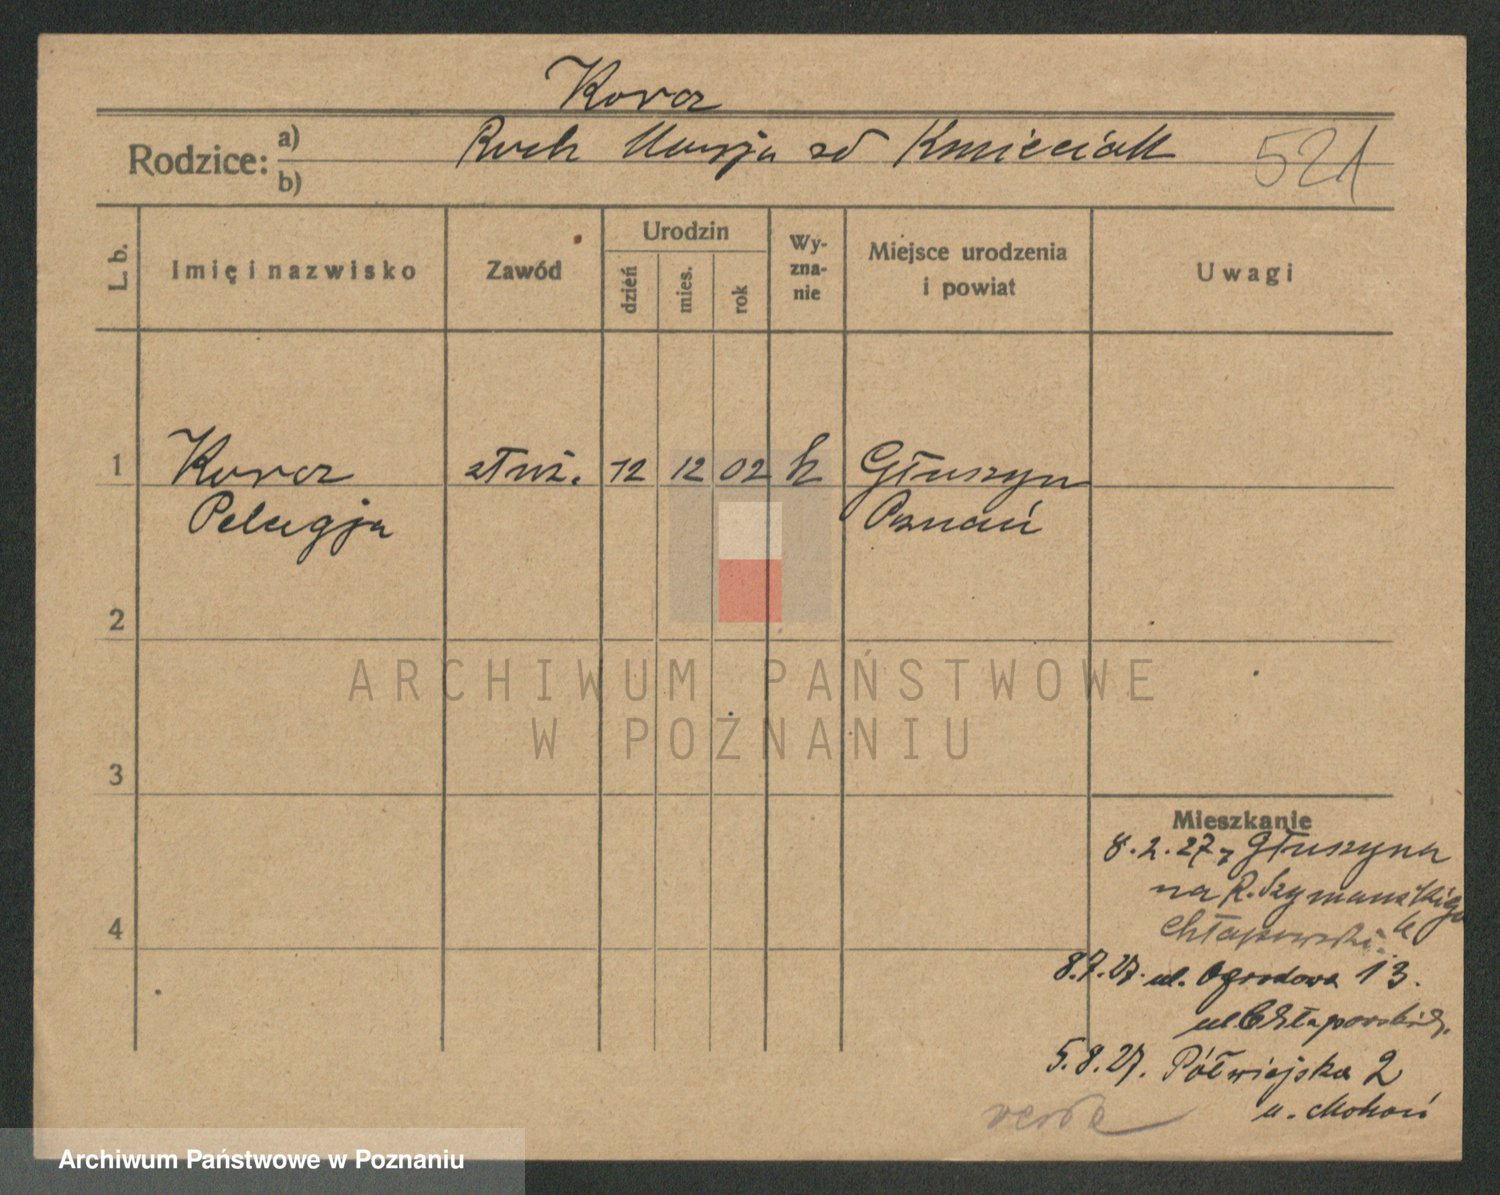 Koracz
Rodzice: a)
b)
Roch Marja zd Kmieciak
521
L. b.
Imię i nazwisko
Zawód
Urodzin
dzień
mies.
rok
Wy-
zna-
nie
Miejsce urodzenia
i powiat
Uwagi
1
służ. 12 12 02 k Głuszyna
Pelagja Poznań
2
ARCHIWUM PAŃSTWOWE
W POZNANIU
3
Mieszkanie
8.2.27 z Głuszyna
na R. Szymańskiego
4
8.7.27. ul. Ogrodowa 13.
5.8.27. Półwiejska 2
u.
Archiwum Państwowe w Poznaniu